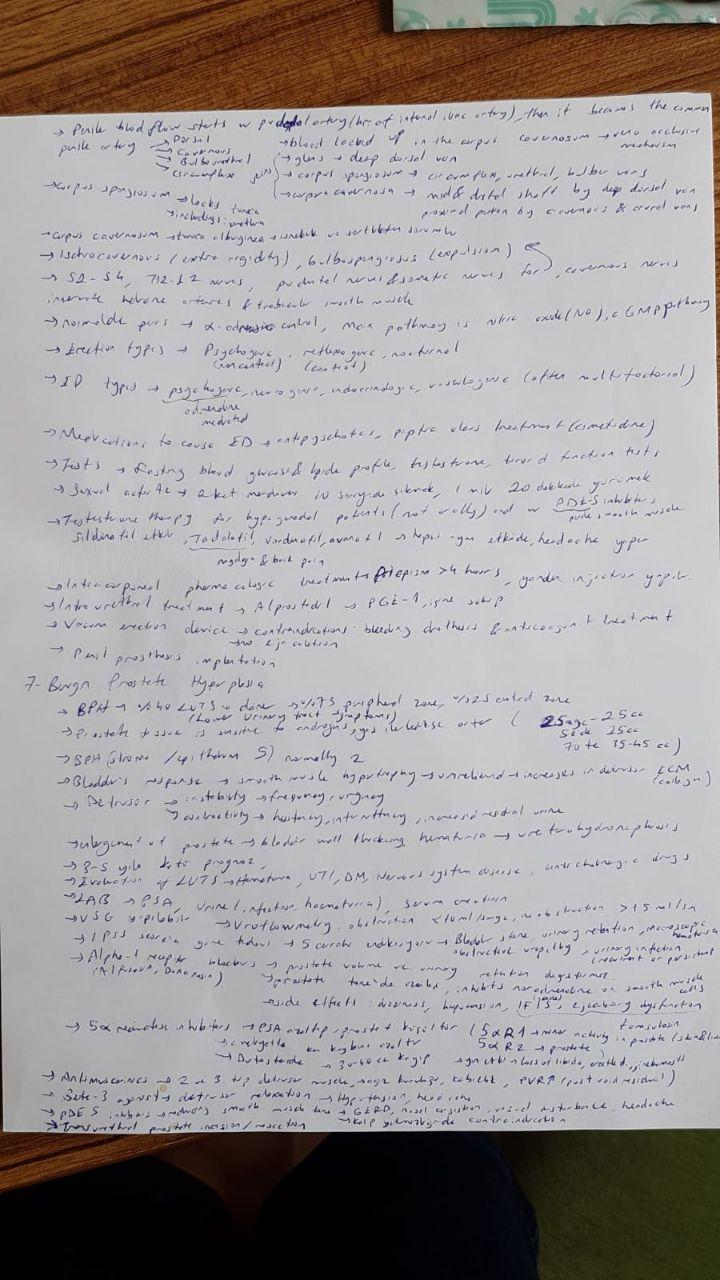 → Penile blood flow starts w pudendal artery (br. of internal iliac artery), then it becomes the common
penile artery → Dorsal → blood locked up in the corpus cavernosum → veno occlusive
→ Cavernous mechanism
→ Bulbourethral → glans → deep dorsal vein
→ Circumflex → corpus spongiosum → circumflex, urethral, bulbar veins
→ corpus spongiosum → lacks tunica → corpora cavernosa → mid & distal shaft by deep dorsal vein
→ including urethra proximal portion by cavernous & crural veins
→ corpus cavernosum → tunica albuginea →
→ Ischiocavernous (extra rigidity), bulbospongiosus (expulsion)
→ S2-S4, T12-L2 nerves, pudental nerves & somatic nerves for, cavernous nerves
innervate helicine arteries & trabecular smooth muscle
→ normalde penis → α-adrenergic control, main pathway is nitric oxide (NO), cGMP pathway
→ Erection types → Psychogenic, reflexogenic, nocturnal
(noncontact) (contact)
→ ED types → psychogenic, neurogenic, endocrinologic, vasculogenic (often multifactorial)
adrenaline
mediated
→ Medications to cause ED → antipsychotics, peptic ulcer treatment (cimetidine)
→ Tests → fasting blood glucose & lipide profile, testosterone, tiroid function tests
→ Sexual activite → 2 kat merdiven 10 saniyede çıkmak, 1 mil 20 dakikada yürümek
→ Testosterone therapy for hypogonadal patients (not orally) and w PDE-5 inhibitors
penile smooth muscle
sildenafil etkili, Tadalafil, vardenafil, avanafil → hepsi aynı etkide, headache yapar
myalgia & back pain
→ Intracorporeal pharmacologic treatment → Priapism >4 hours, yandan injection yapılır.
→ Intraurethral treatment → Alprostadil → PGE-1,
→ Vacum erection device → contraindications: bleeding diathesis & anticoagulant treatment
→ no ejaculation
→ Penil prosthesis implantation
7- Benign Prostate Hyperplasia
→ BPH → %40 LUTS → %75 peripheral zone, %25 central zone
(Lower urinary tract symptoms)
→ Prostate tissue is sensitive to androgens, yaş ilerledikçe artar ( 25 age - 25 cc
50 de 25cc
70 te 35-45 cc)
→ BPH (Stroma / epithelium 5) normally 2
→ Bladder's response → smooth muscle hypertrophy → unrelieved → increases in detrusor ECM
(collagen)
→ Detrusor → instability → frequency, urgency
→ contractivity → hesitancy, intermittency, increased residual urine
→ enlargement of prostate → bladder wall thickening, hematuria → ureterohydronephrosis
→ 3-5 yılda kötü prognoz,
→ Evaluation of LUTS → Hematuria, UTI, DM, Nervous system disease, anticholinergic drugs
→ LAB → PSA, Urine (infection, haematuria), serum creatinin
→ USG yapılabilir → Uroflowmetry, obstruction <10ml/saniye, no obstruction >15 ml/sn
→ IPSS score'a göre tedavi → Bladder stone, urinary retention, macroscopic
hematuria
obstructive uropathy, urinary infection
(recurrent or persistent
→ Alpha-1 receptor blockers → prostate volume ve urinary retention değiştirmez.
(Alfuzosin, Doxazosin) → prostate tone'da azalma, inhibits noradrenaline on smooth muscle
cells
→ side effects: dizziness, hypotension, IFIS, ejaculatory dysfunction
tamsulosin
→ 5α reductase inhibitors → PSA azaltıp, prostat küçültür (5αR1 → minor activity in prostate (skin&liver
5αR2 → prostate)
→ Dutasteride → 30-40 cc → loss of libido, erectile dysfunction
→ Antimuscarinics → 2 ve 3. tip detrusor muscle, → ağız kuruluğu, kabızlık, PVR↑ (post void residual)
→ Beta-3 agonists → detrusor relaxation → Hypertension, headache
→ PDE5 inhibitors → reducing smooth muscle tone → GERD, nasal congestion, visual disturbance, headache
→ kalp yetmezliğinde contraindication
→ Transurethral prostate incision/resection